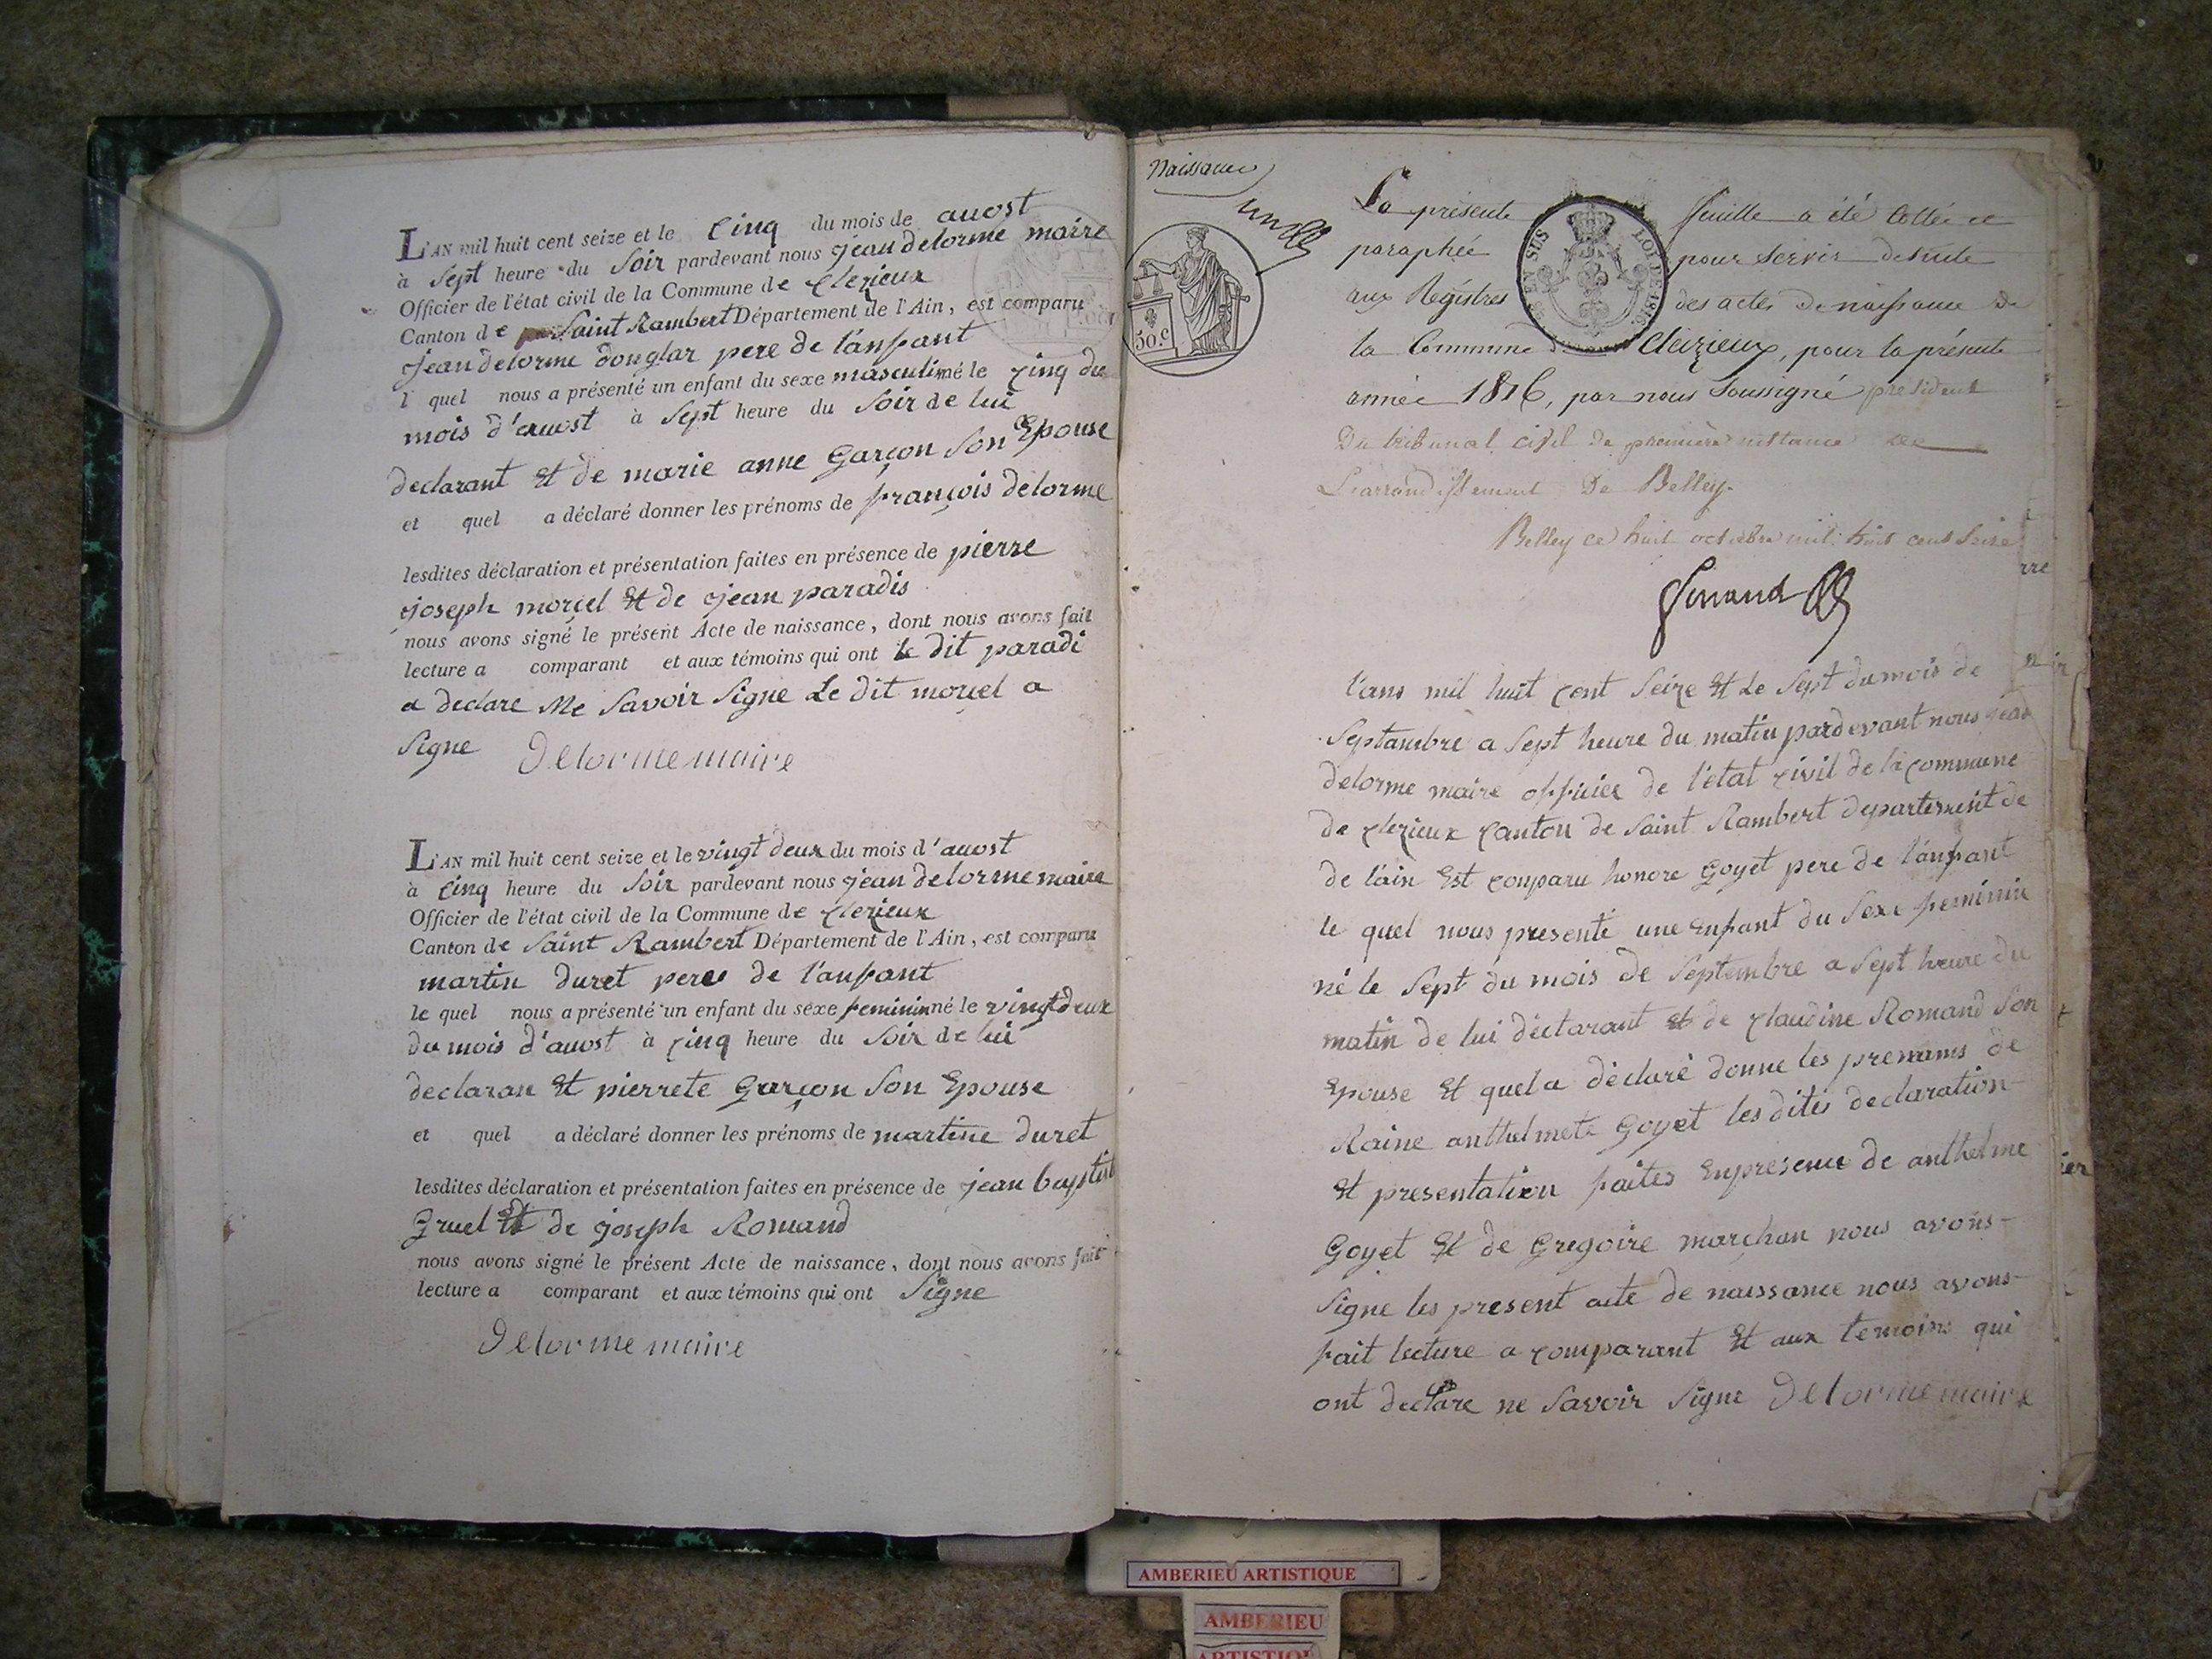 L'AN mil huit cent seize et le Cinq du mois de auost
à Sept heure du Soir pardevant nous jean delorme maire
Officier de l'état civil de la Commune de Clezieux
Canton de Saint Rambert Département de l'Ain, est comparu
jean delorme douglar pere de l'anfant
l quel nous a présenté un enfant du sexe masculin né le cinq du
mois d'auost à Sept heure du Soir de lui
declarant Et de marie anne Garçon Son Epouse
et quel a déclaré donner les prénoms de françois delorme
lesdites déclaration et présentation faites en présence de pierre
joseph morçel Et de jean paradis
nous avons signé le présent Acte de naissance, dont nous avons fait
lecture a comparant et aux témoins qui ont le dit paradi
a declare Ne Savoir Signe Le dit morçel a
Signe Delorme maire
L'AN mil huit cent seize et le vingt deux du mois d'auost
à Cinq heure du Soir pardevant nous jean delorme maire
Officier de l'état civil de la Commune de Clezieux
Canton de Saint Rambert Département de l'Ain, est comparu
martin duret pere de l'anfant
le quel nous a présenté un enfant du sexe feminin né le vingt deux
du mois d'auost à cinq heure du Soir de lui
declaran Et pierrete Garçon Son Epouse
et quel a déclaré donner les prénoms de martine duret
lesdites déclaration et présentation faites en présence de jean baptist
Gruel Et de joseph Romand
nous avons signé le présent Acte de naissance, dont nous avons fait
lecture a comparant et aux témoins qui ont Signe
Delorme maire
Naissance
un
50.c
EN SUS LOI DE 1816
La présente feuille a été Cottée et
paraphée pour servir de suite
aux Registres des actes de naissance de
la Commune de Cleizieux, pour la présente
année 1816, par nous Soussigné président
Du tribunal civil de première instance de
L'arrondissement De Belley.
Belley ce huit octobre mil huit cent Seize
l'ans mil huit cent Seize Et Le Sept du mois de
Septambre a Sept heure du matin pardevant nous jean
delorme maire officier de l'etat civil de la commune
de clezieux canton de Saint Rambert departement de
de l'ain Est conparu honore Goyet pere de l'anfant
le quel nous presenté une Enfant du Sexe feminin
né le Sept du mois de Septembre a Sept heure du
matin de lui déclarant Et de claudine Romand Son
Epouse Et quel a déclaré donne les prenams de
Raine anthelmete Goyet les dites declaration
Et presentation faites Enpresence de anthelme
Goyet Et de Gregoire marchan nous avons
Signe les present acte de naissance nous avons
fait lecture a comparant Et aux temoins qui
ont declare ne Savoir Signe Delorme maire
AMBERIEU ARTISTIQUE
AMBERIEU
ARTISTIQU